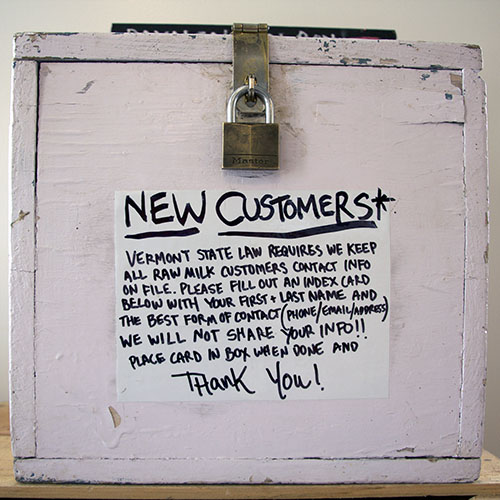 Master
NEW CUSTOMERS*
VERMONT STATE LAW REQUIRES WE KEEP
ALL RAW MILK CUSTOMERS CONTACT INFO
ON FILE. PLEASE FILL OUT AN INDEX CARD
BELOW WITH YOUR FIRST + LAST NAME AND
THE BEST FORM OF CONTACT (PHONE/EMAIL/ADDRESS)
WE WILL NOT SHARE YOUR INFO!!
PLACE CARD IN BOX WHEN DONE AND
THANK YOU!